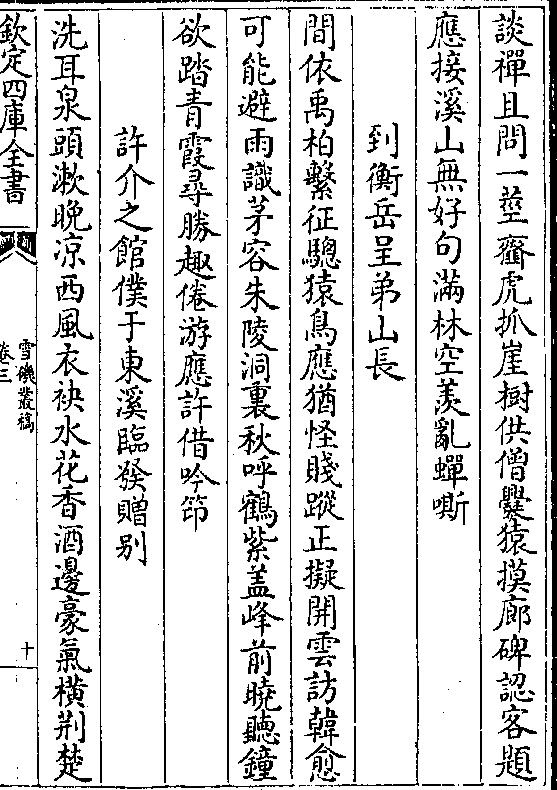 談禪且問一莖虀虎抓崖樹供僧爨猿摸廊碑認客題
應接溪山無好句滿林空羨亂蟬嘶
到衡岳呈弟山長
間依禹柏繫征驄猿鳥應猶怪賤蹤正擬開雲訪韓愈
可能避雨識茅容朱陵洞裏秋呼鶴紫盖峰前曉聽鐘
欲踏青霞尋勝趣倦游應許借吟笻
許介之館僕于東溪臨發贈别
洗耳泉頭漱晩凉西風衣袂水花香酒邊豪氣橫荆楚
欽定四庫全書
雪磯叢稿
卷三
十